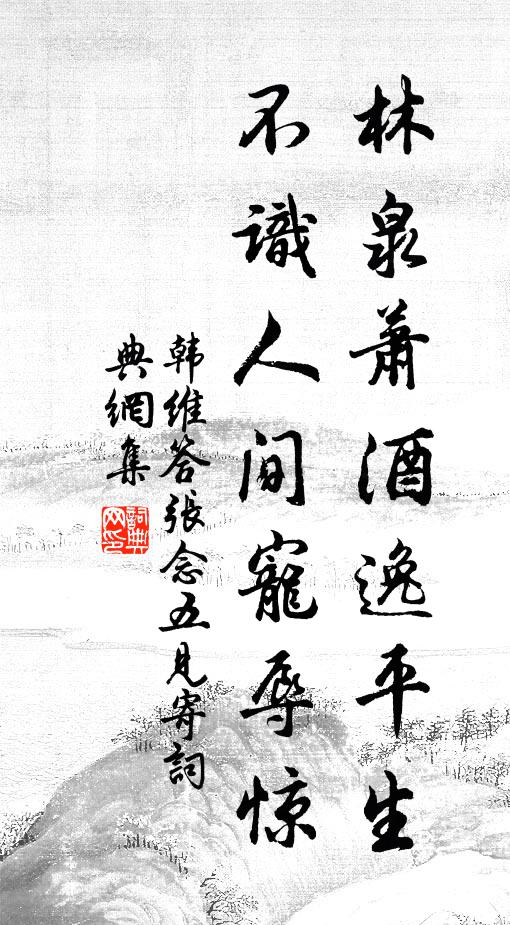 林泉萧洒逸平生
不識人间寵辱惊
韩维答张念五見寄詞
典網集
詞典网印